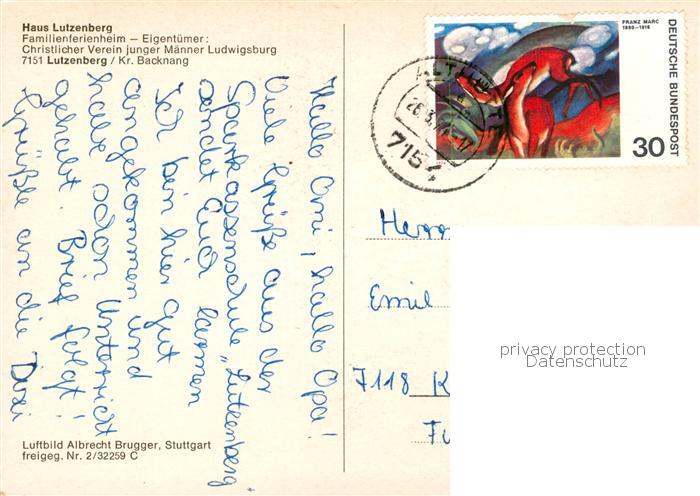 Haus Lutzenberg
Familienferienheim – Eigentümer:
Christlicher Verein junger Männer Ludwigsburg
7151 Lutzenberg / Kr. Backnang
Hallo Omi, hallo Opa!
Viele Grüße aus der
Sparkassenschule „Lutzenberg"
sendet Euch
Ich bin hier gut
angekommen und
habe schon Unterricht
gehabt. Brief folgt!
Grüße an die
Luftbild Albrecht Brugger, Stuttgart
freigeg. Nr. 2/32259 C
FRANZ MARC
1880–1916
DEUTSCHE BUNDESPOST
30
ALTHÜTTE
7154
Herrn
Emil
7118 K
privacy protection
Datenschutz